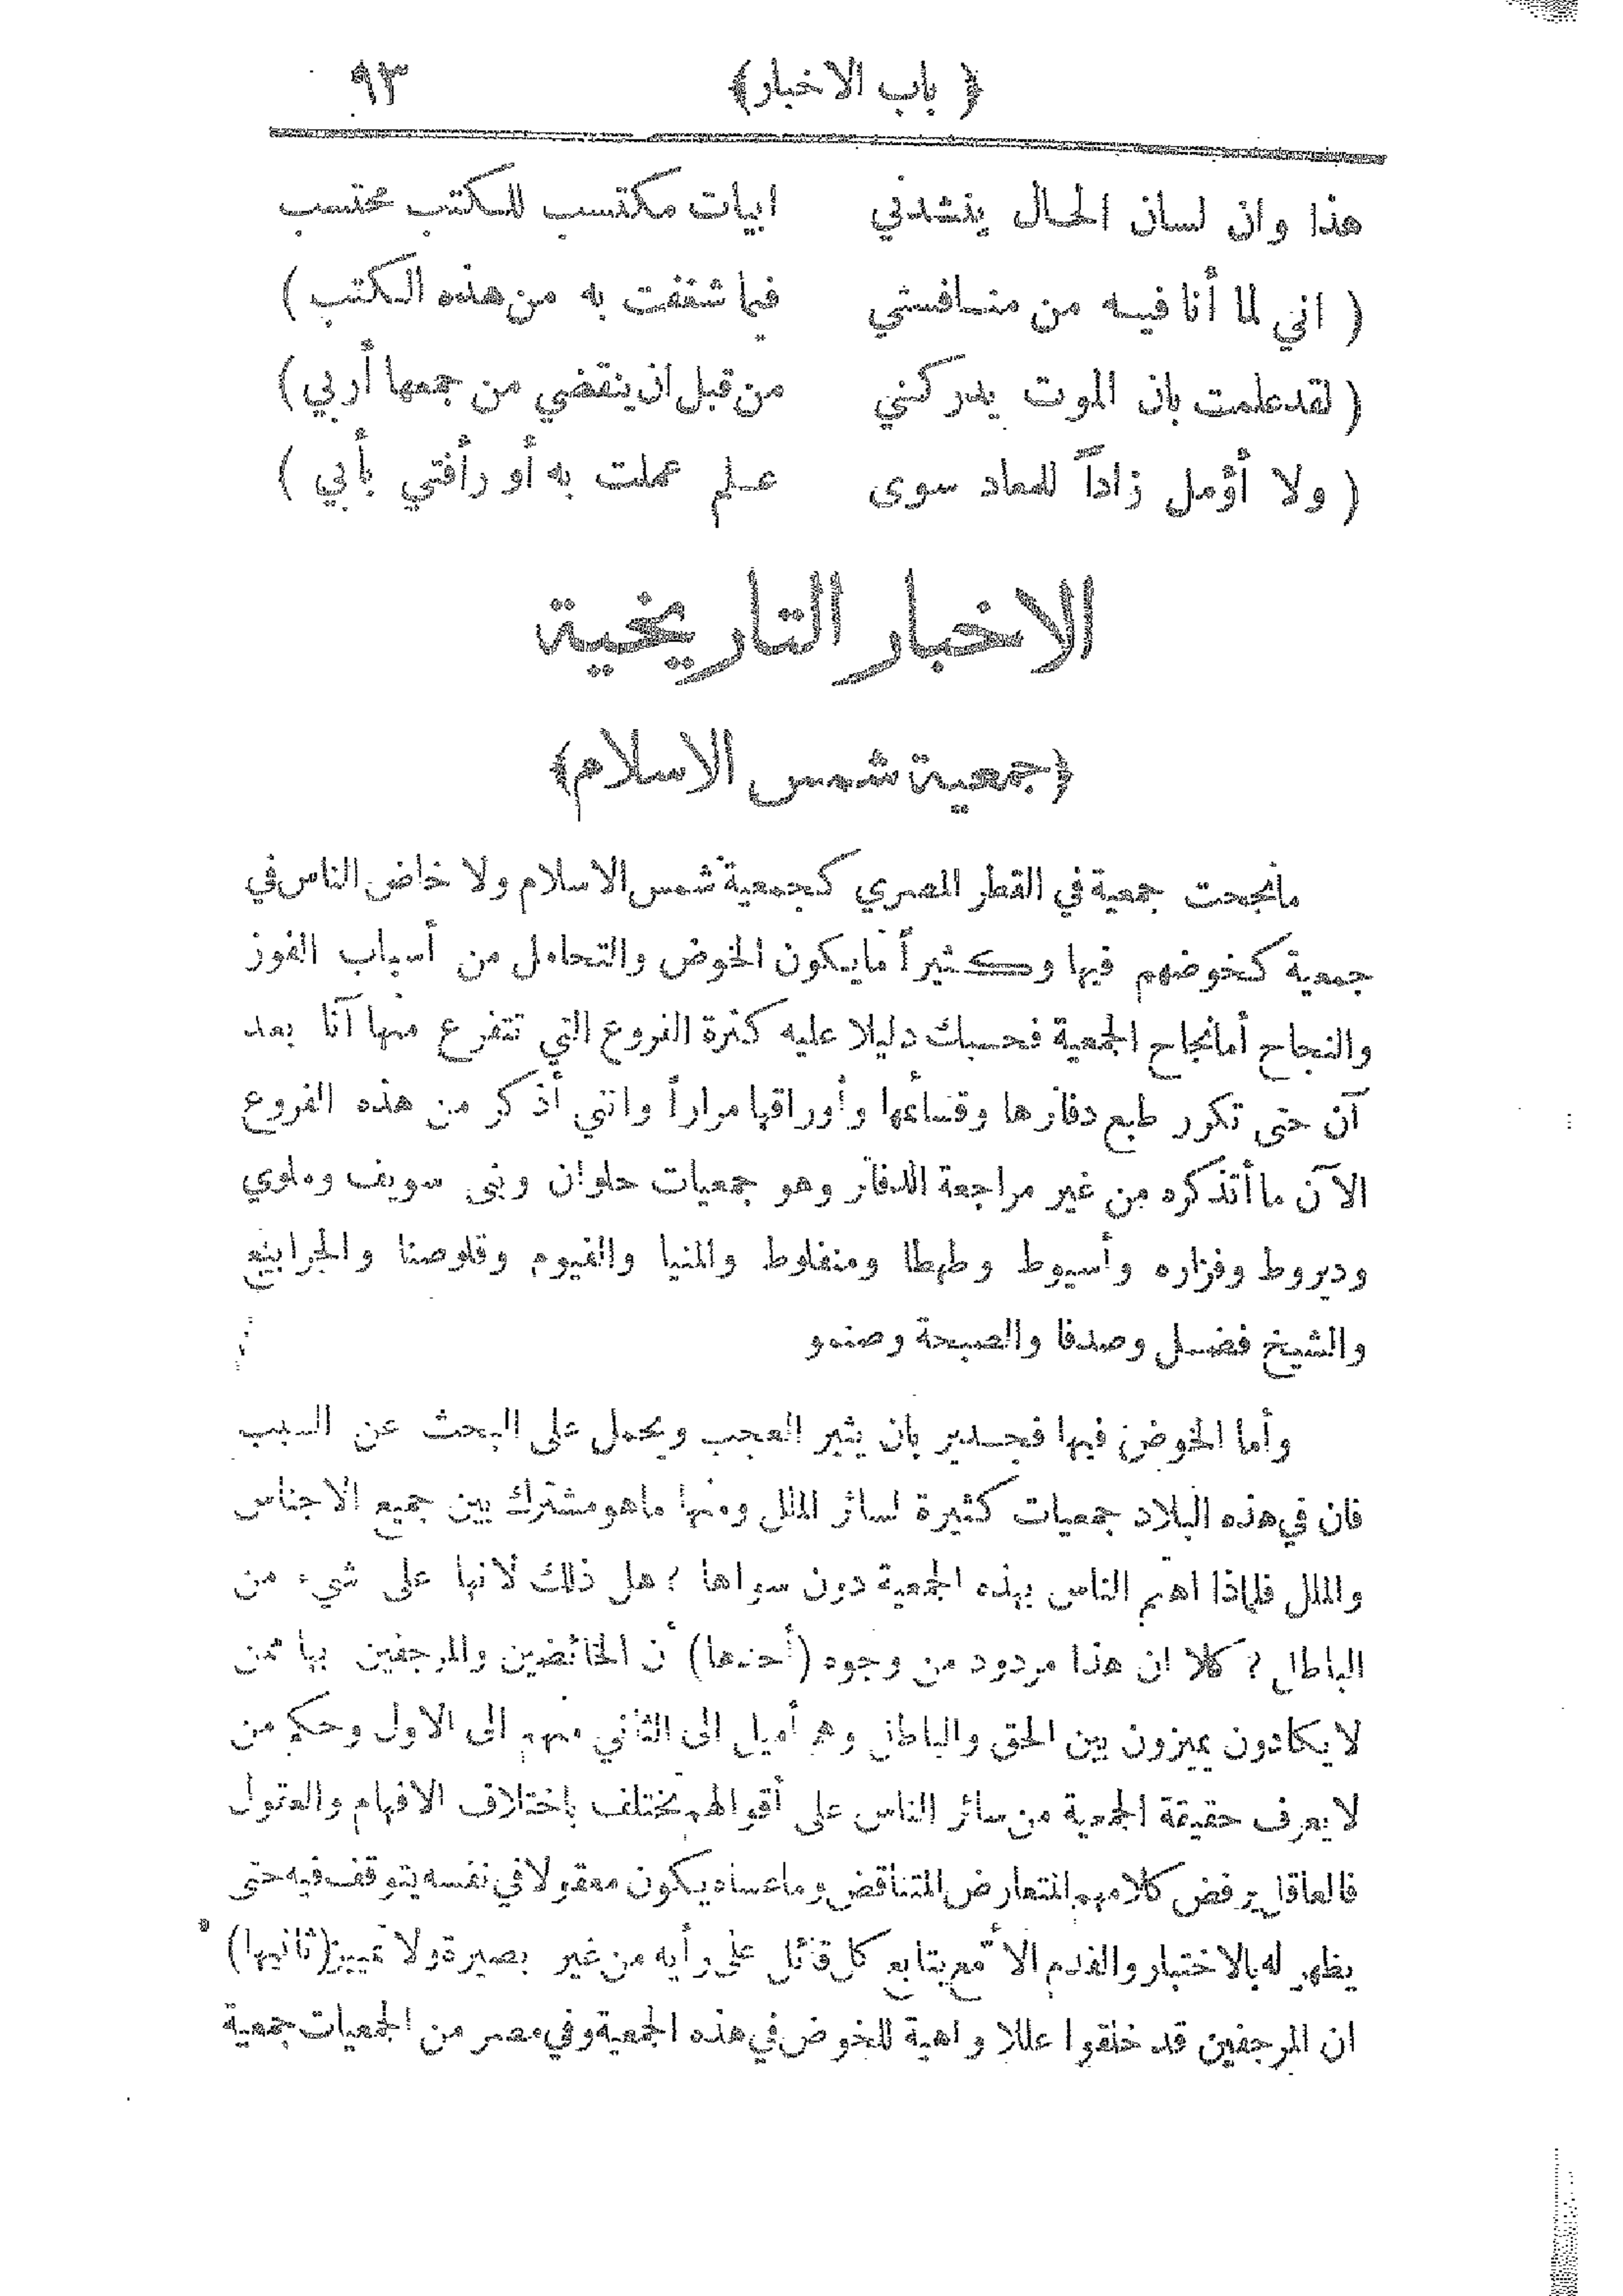 ﴿ باب الاخبار ﴾ ٩٣
هذا وان لسان الحال ينشدني ابيات مكتسب للكتب محتسب
( اني لما أنا فيه من منافستي فيما شغفت به من هذه الكتب )
( لقد علمت بان الموت يدركني من قبل ان ينقضي من جمعها أربي )
( ولا أؤمل زاداً للمعاد سوى علم عملت به أو رأفتي بأبي )
الاخبار التاريخية
﴿ جمعية شمس الاسلام ﴾
ما نجحت جمعية في القطر المصري كجمعية شمس الاسلام ولا خاض الناس في
جمعية كخوضهم فيها وكثيراً ما يكون الخوض والتحامل من أسباب الفوز
والنجاح أما نجاح الجمعية فحسبك دليلا عليه كثرة الفروع التي تتفرع منها آنا بعد
آن حتى تكرر طبع دفاترها وقسائمها وأوراقها مراراً وانني أذكر من هذه الفروع
الآن ما أتذكره من غير مراجعة الدفاتر وهو جمعيات حلوان وبنى سويف وملوي
وديروط وفزاره وأسيوط وطهطا ومنفلوط والمنيا والفيوم وقلوصنا والجرابيع
والشيخ فضل وصدفا والصبحة وصنمو
وأما الخوض فيها فجدير بان يثير العجب ويحمل على البحث عن السبب
فان في هذه البلاد جمعيات كثيرة لسائر الملل ومنها ما هو مشترك بين جميع الاجناس
والملل فلماذا اهتم الناس بهذه الجمعية دون سواها ؟ هل ذلك لانها على شيء من
الباطل ؟ كلا ان هذا مردود من وجوه (أحدها) أن الخائضين والمرجفين بها ممن
لا يكادون يميزون بين الحق والباطل وهم أميل الى الثاني منهم الى الاول وحكم من
لا يعرف حقيقة الجمعية من سائر الناس على أقوالهم يختلف باختلاف الافهام والعقول
فالعاقل يرفض كلامهم المتعارض المتناقض وما عساه يكون معقولا في نفسه يتوقف فيه حتى
يظهر له بالاختبار والفدم الامّع يتابع كل قائل على رأيه من غير بصيرة ولا تمييز (ثانيها)
ان المرجفين قد خلقوا عللا واهية للخوض في هذه الجمعية وفي مصر من الجمعيات جمعية